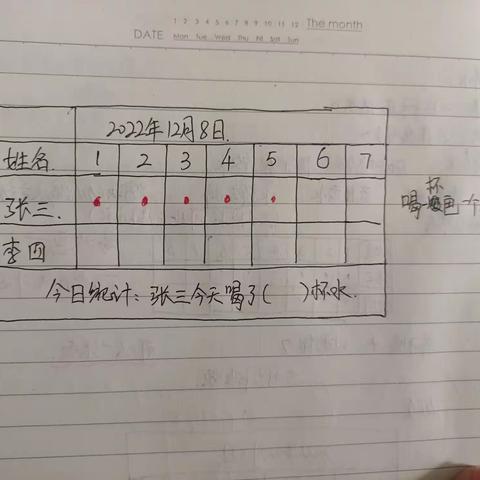 1 2 3 4 5 6 7 8 9 10 11 12 The month
DATE Mon Tue Wed Thu Fri Sat Sun
2022年12月8日.
姓名 1 2 3 4 5 6 7
张三.
喝一杯画一个
李四
今日统计:张三今天喝了( )杯水.